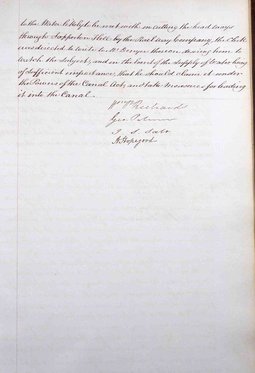 to the Water likely to be met with in cutting the head ways
through Sapperton Hill by the Railway Company, the Clerk
was directed to write to Mr Benjn desiring him to
watch the subject, and in the event of the supply of Water being
of sufficient importance, that he should claim it under
the Powers of the Canal Act, and take measures for leading
it into the Canal.
Geo.